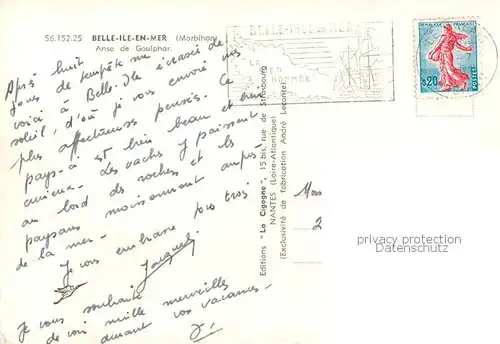 56.152.25 BELLE-ILE-EN-MER (Morbihan)
Anse de Goulphar.
BELLE-ISLE en MER
LA
BIEN
NOMMÉE
0,20
POSTES
Après huit
jours de tempête me
voici à Belle-Ile écrasée de
soleil, d'où je vous envoie mes
plus affectueuses pensées. Ce
pays-ci est bien beau et bien
curieux. Les vaches y paissent
au bord des roches et les
paysans moissonnent auprès
de la mer -
Je vous embrasse tous trois
Jacques
Je vous souhaite
de voir mille merveilles
durant vos vacances -
J.
Editions "La Cigogne", 15 bis, rue de Strasbourg
NANTES (Loire-Atlantique)
(Exclusivité de fabrication André Leconte)
2
privacy protection
Datenschutz